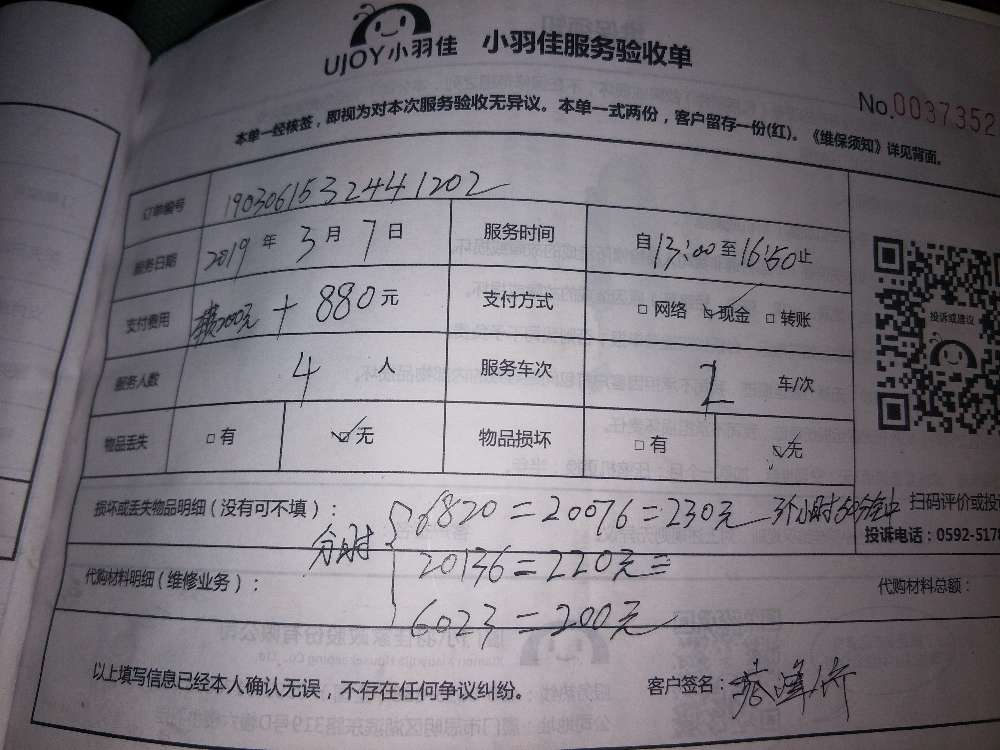 UJOY小羽佳 小羽佳服务验收单
No.0037352
本单一经核签，即视为对本次服务验收无异议。本单一式两份，客户留存一份(红)。《维保须知》详见背面。
订单编号 1903061532441202
服务日期 2019年3月7日 服务时间 自13:00至16:50止
支付费用 200元+880元 支付方式 □网络 ☑现金 □转账
服务人数 4人 服务车次 2车/次
物品丢失 □有 ☑无 物品损坏 □有 ☑无
投诉或建议
损坏或丢失物品明细（没有可不填）：
6820=20076=230元 3个小时50分钟
分时 20136=220元
6023=200元
扫码评价或投
投诉电话：0592-5178
代购材料明细（维修业务）：
代购材料总额：
以上填写信息已经本人确认无误，不存在任何争议纠纷。
客户签名：